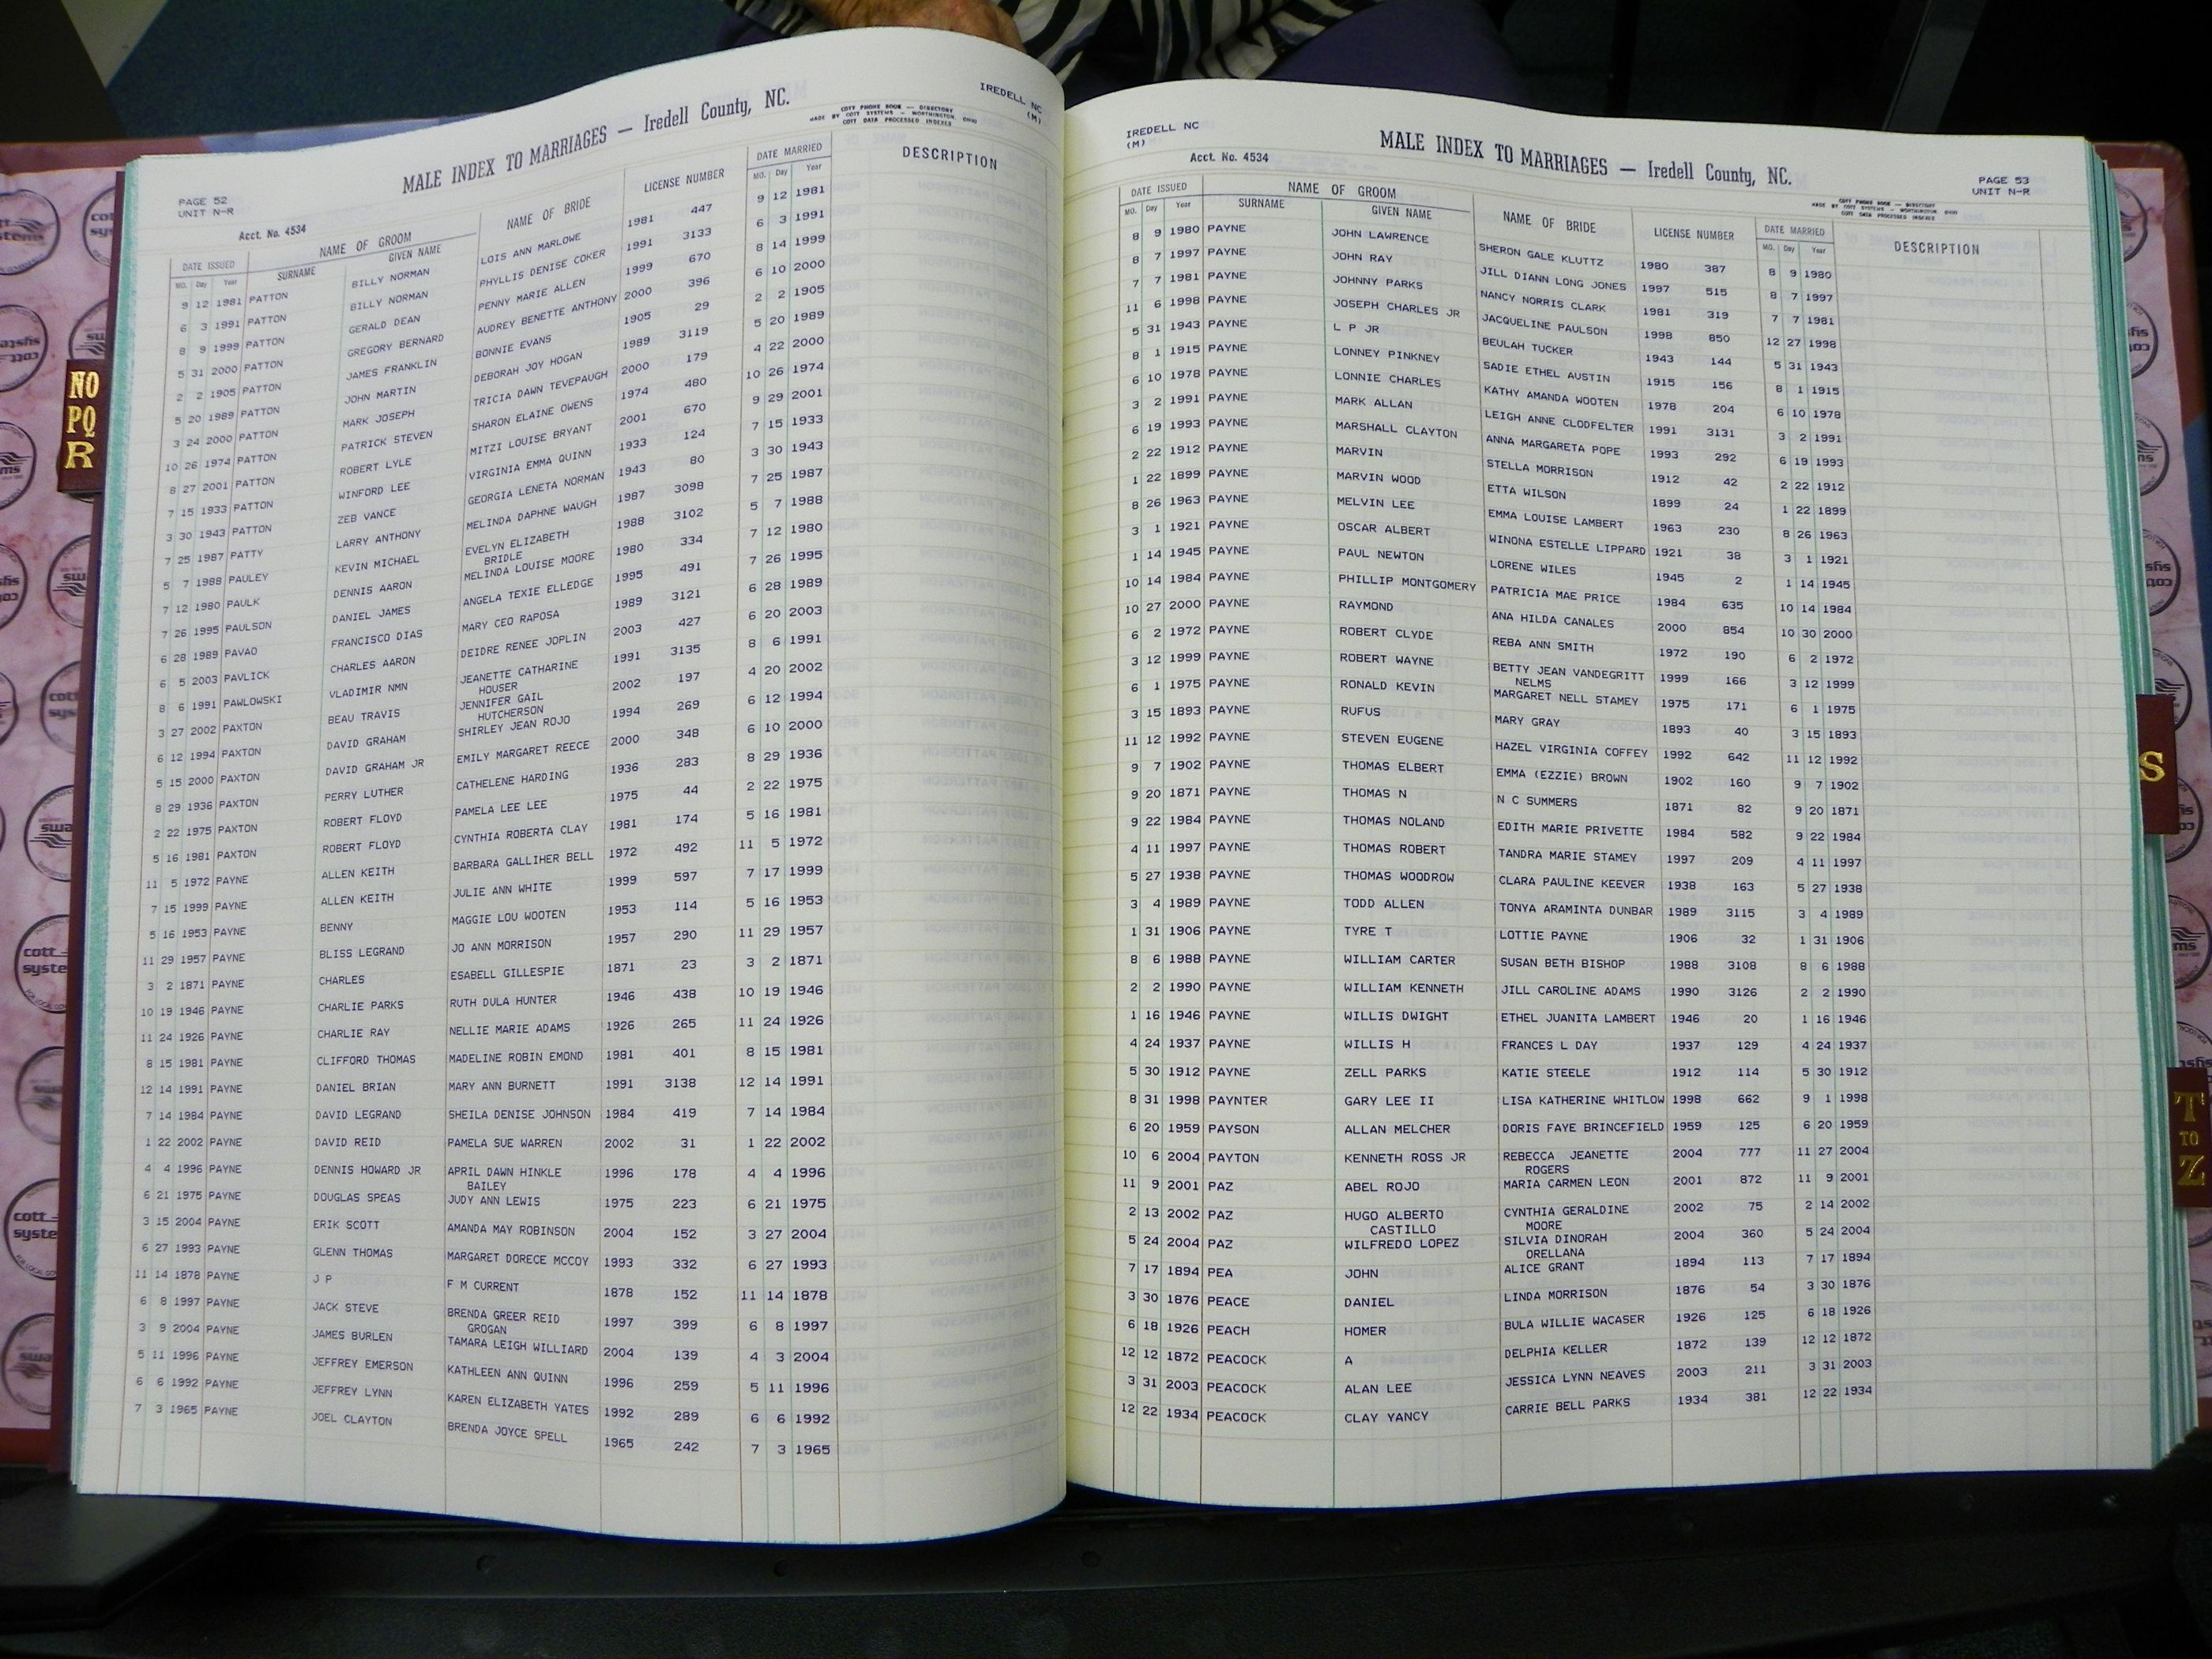 IREDELL NC
(M)
MALE INDEX TO MARRIAGES — Iredell County, NC.
COTT PHONE BOOK — DIRECTORY
MADE BY COTT SYSTEMS — WORTHINGTON, OHIO
COTT DATA PROCESSED INDEXES
PAGE 52
UNIT N-R
Acct. No. 4534
DATE ISSUED NAME OF GROOM NAME OF BRIDE LICENSE NUMBER DATE MARRIED DESCRIPTION
MO. Day Year SURNAME GIVEN NAME MO. Day Year
9 12 1981 PATTON BILLY NORMAN LOIS ANN MARLOWE 1981 447 9 12 1981
6 3 1991 PATTON BILLY NORMAN PHYLLIS DENISE COKER 1991 3133 6 3 1991
8 9 1999 PATTON GERALD DEAN PENNY MARIE ALLEN 1999 670 8 14 1999
5 31 2000 PATTON GREGORY BERNARD AUDREY BENETTE ANTHONY 2000 396 6 10 2000
2 2 1905 PATTON JAMES FRANKLIN BONNIE EVANS 1905 29 2 2 1905
5 20 1989 PATTON JOHN MARTIN DEBORAH JOY HOGAN 1989 3119 5 20 1989
3 24 2000 PATTON MARK JOSEPH TRICIA DAWN TEVEPAUGH 2000 179 4 22 2000
10 26 1974 PATTON PATRICK STEVEN SHARON ELAINE OWENS 1974 480 10 26 1974
8 27 2001 PATTON ROBERT LYLE MITZI LOUISE BRYANT 2001 670 9 29 2001
7 15 1933 PATTON WINFORD LEE VIRGINIA EMMA QUINN 1933 124 7 15 1933
3 30 1943 PATTON ZEB VANCE GEORGIA LENETA NORMAN 1943 80 3 30 1943
7 25 1987 PATTY LARRY ANTHONY MELINDA DAPHNE WAUGH 1987 3098 7 25 1987
5 7 1988 PAULEY KEVIN MICHAEL EVELYN ELIZABETH 1988 3102 5 7 1988
BRIDLE
7 12 1980 PAULK DENNIS AARON MELINDA LOUISE MOORE 1980 334 7 12 1980
7 26 1995 PAULSON DANIEL JAMES ANGELA TEXIE ELLEDGE 1995 491 7 26 1995
6 28 1989 PAVAO FRANCISCO DIAS MARY CEO RAPOSA 1989 3121 6 28 1989
6 5 2003 PAVLICK CHARLES AARON DEIDRE RENEE JOPLIN 2003 427 6 20 2003
8 6 1991 PAWLOWSKI VLADIMIR NMN JEANETTE CATHARINE 1991 3135 8 6 1991
HOUSER
3 27 2002 PAXTON BEAU TRAVIS JENNIFER GAIL 2002 197 4 20 2002
HUTCHERSON
6 12 1994 PAXTON DAVID GRAHAM SHIRLEY JEAN ROJO 1994 269 6 12 1994
5 15 2000 PAXTON DAVID GRAHAM JR EMILY MARGARET REECE 2000 348 6 10 2000
8 29 1936 PAXTON PERRY LUTHER CATHELENE HARDING 1936 283 8 29 1936
2 22 1975 PAXTON ROBERT FLOYD PAMELA LEE LEE 1975 44 2 22 1975
5 16 1981 PAXTON ROBERT FLOYD CYNTHIA ROBERTA CLAY 1981 174 5 16 1981
11 5 1972 PAYNE ALLEN KEITH BARBARA GALLIHER BELL 1972 492 11 5 1972
7 15 1999 PAYNE ALLEN KEITH JULIE ANN WHITE 1999 597 7 17 1999
5 16 1953 PAYNE BENNY MAGGIE LOU WOOTEN 1953 114 5 16 1953
11 29 1957 PAYNE BLISS LEGRAND JO ANN MORRISON 1957 290 11 29 1957
3 2 1871 PAYNE CHARLES ESABELL GILLESPIE 1871 23 3 2 1871
10 19 1946 PAYNE CHARLIE PARKS RUTH DULA HUNTER 1946 438 10 19 1946
11 24 1926 PAYNE CHARLIE RAY NELLIE MARIE ADAMS 1926 265 11 24 1926
8 15 1981 PAYNE CLIFFORD THOMAS MADELINE ROBIN EMOND 1981 401 8 15 1981
12 14 1991 PAYNE DANIEL BRIAN MARY ANN BURNETT 1991 3138 12 14 1991
7 14 1984 PAYNE DAVID LEGRAND SHEILA DENISE JOHNSON 1984 419 7 14 1984
1 22 2002 PAYNE DAVID REID PAMELA SUE WARREN 2002 31 1 22 2002
4 4 1996 PAYNE DENNIS HOWARD JR APRIL DAWN HINKLE 1996 178 4 4 1996
BAILEY
6 21 1975 PAYNE DOUGLAS SPEAS JUDY ANN LEWIS 1975 223 6 21 1975
3 15 2004 PAYNE ERIK SCOTT AMANDA MAY ROBINSON 2004 152 3 27 2004
6 27 1993 PAYNE GLENN THOMAS MARGARET DORECE MCCOY 1993 332 6 27 1993
11 14 1878 PAYNE J P F M CURRENT 1878 152 11 14 1878
6 8 1997 PAYNE JACK STEVE BRENDA GREER REID 1997 399 6 8 1997
GROGAN
3 9 2004 PAYNE JAMES BURLEN TAMARA LEIGH WILLIARD 2004 139 4 3 2004
5 11 1996 PAYNE JEFFREY EMERSON KATHLEEN ANN QUINN 1996 259 5 11 1996
6 6 1992 PAYNE JEFFREY LYNN KAREN ELIZABETH YATES 1992 289 6 6 1992
7 3 1965 PAYNE JOEL CLAYTON BRENDA JOYCE SPELL 1965 242 7 3 1965
IREDELL NC
(M)
Acct. No. 4534
MALE INDEX TO MARRIAGES — Iredell County, NC.
PAGE 53
UNIT N-R
COTT PHONE BOOK — DIRECTORY
MADE BY COTT SYSTEMS — WORTHINGTON, OHIO
COTT DATA PROCESSED INDEXES
DATE ISSUED NAME OF GROOM NAME OF BRIDE LICENSE NUMBER DATE MARRIED DESCRIPTION
MO. Day Year SURNAME GIVEN NAME MO. Day Year
8 9 1980 PAYNE JOHN LAWRENCE SHERON GALE KLUTTZ 1980 387 8 9 1980
8 7 1997 PAYNE JOHN RAY JILL DIANN LONG JONES 1997 515 8 7 1997
7 7 1981 PAYNE JOHNNY PARKS NANCY NORRIS CLARK 1981 319 7 7 1981
11 6 1998 PAYNE JOSEPH CHARLES JR JACQUELINE PAULSON 1998 850 12 27 1998
5 31 1943 PAYNE L P JR BEULAH TUCKER 1943 144 5 31 1943
8 1 1915 PAYNE LONNEY PINKNEY SADIE ETHEL AUSTIN 1915 156 8 1 1915
6 10 1978 PAYNE LONNIE CHARLES KATHY AMANDA WOOTEN 1978 204 6 10 1978
3 2 1991 PAYNE MARK ALLAN LEIGH ANNE CLODFELTER 1991 3131 3 2 1991
6 19 1993 PAYNE MARSHALL CLAYTON ANNA MARGARETA POPE 1993 292 6 19 1993
2 22 1912 PAYNE MARVIN STELLA MORRISON 1912 42 2 22 1912
1 22 1899 PAYNE MARVIN WOOD ETTA WILSON 1899 24 1 22 1899
8 26 1963 PAYNE MELVIN LEE EMMA LOUISE LAMBERT 1963 230 8 26 1963
3 1 1921 PAYNE OSCAR ALBERT WINONA ESTELLE LIPPARD 1921 38 3 1 1921
1 14 1945 PAYNE PAUL NEWTON LORENE WILES 1945 2 1 14 1945
10 14 1984 PAYNE PHILLIP MONTGOMERY PATRICIA MAE PRICE 1984 635 10 14 1984
10 27 2000 PAYNE RAYMOND ANA HILDA CANALES 2000 854 10 30 2000
6 2 1972 PAYNE ROBERT CLYDE REBA ANN SMITH 1972 190 6 2 1972
3 12 1999 PAYNE ROBERT WAYNE BETTY JEAN VANDEGRITT 1999 166 3 12 1999
NELMS
6 1 1975 PAYNE RONALD KEVIN MARGARET NELL STAMEY 1975 171 6 1 1975
3 15 1893 PAYNE RUFUS MARY GRAY 1893 40 3 15 1893
11 12 1992 PAYNE STEVEN EUGENE HAZEL VIRGINIA COFFEY 1992 642 11 12 1992
9 7 1902 PAYNE THOMAS ELBERT EMMA (EZZIE) BROWN 1902 160 9 7 1902
9 20 1871 PAYNE THOMAS N N C SUMMERS 1871 82 9 20 1871
9 22 1984 PAYNE THOMAS NOLAND EDITH MARIE PRIVETTE 1984 582 9 22 1984
4 11 1997 PAYNE THOMAS ROBERT TANDRA MARIE STAMEY 1997 209 4 11 1997
5 27 1938 PAYNE THOMAS WOODROW CLARA PAULINE KEEVER 1938 163 5 27 1938
3 4 1989 PAYNE TODD ALLEN TONYA ARAMINTA DUNBAR 1989 3115 3 4 1989
1 31 1906 PAYNE TYRE T LOTTIE PAYNE 1906 32 1 31 1906
8 6 1988 PAYNE WILLIAM CARTER SUSAN BETH BISHOP 1988 3108 8 6 1988
2 2 1990 PAYNE WILLIAM KENNETH JILL CAROLINE ADAMS 1990 3126 2 2 1990
1 16 1946 PAYNE WILLIS DWIGHT ETHEL JUANITA LAMBERT 1946 20 1 16 1946
4 24 1937 PAYNE WILLIS H FRANCES L DAY 1937 129 4 24 1937
5 30 1912 PAYNE ZELL PARKS KATIE STEELE 1912 114 5 30 1912
8 31 1998 PAYNTER GARY LEE II LISA KATHERINE WHITLOW 1998 662 9 1 1998
6 20 1959 PAYSON ALLAN MELCHER DORIS FAYE BRINCEFIELD 1959 125 6 20 1959
10 6 2004 PAYTON KENNETH ROSS JR REBECCA JEANETTE 2004 777 11 27 2004
ROGERS
11 9 2001 PAZ ABEL ROJO MARIA CARMEN LEON 2001 872 11 9 2001
2 13 2002 PAZ HUGO ALBERTO CYNTHIA GERALDINE 2002 75 2 14 2002
CASTILLO MOORE
5 24 2004 PAZ WILFREDO LOPEZ SILVIA DINORAH 2004 360 5 24 2004
ORELLANA
7 17 1894 PEA JOHN ALICE GRANT 1894 113 7 17 1894
3 30 1876 PEACE DANIEL LINDA MORRISON 1876 54 3 30 1876
6 18 1926 PEACH HOMER BULA WILLIE WACASER 1926 125 6 18 1926
12 12 1872 PEACOCK A DELPHIA KELLER 1872 139 12 12 1872
3 31 2003 PEACOCK ALAN LEE JESSICA LYNN NEAVES 2003 211 3 31 2003
12 22 1934 PEACOCK CLAY YANCY CARRIE BELL PARKS 1934 381 12 22 1934
NO
PQ
R
S
T
TO
Z
cott
systems